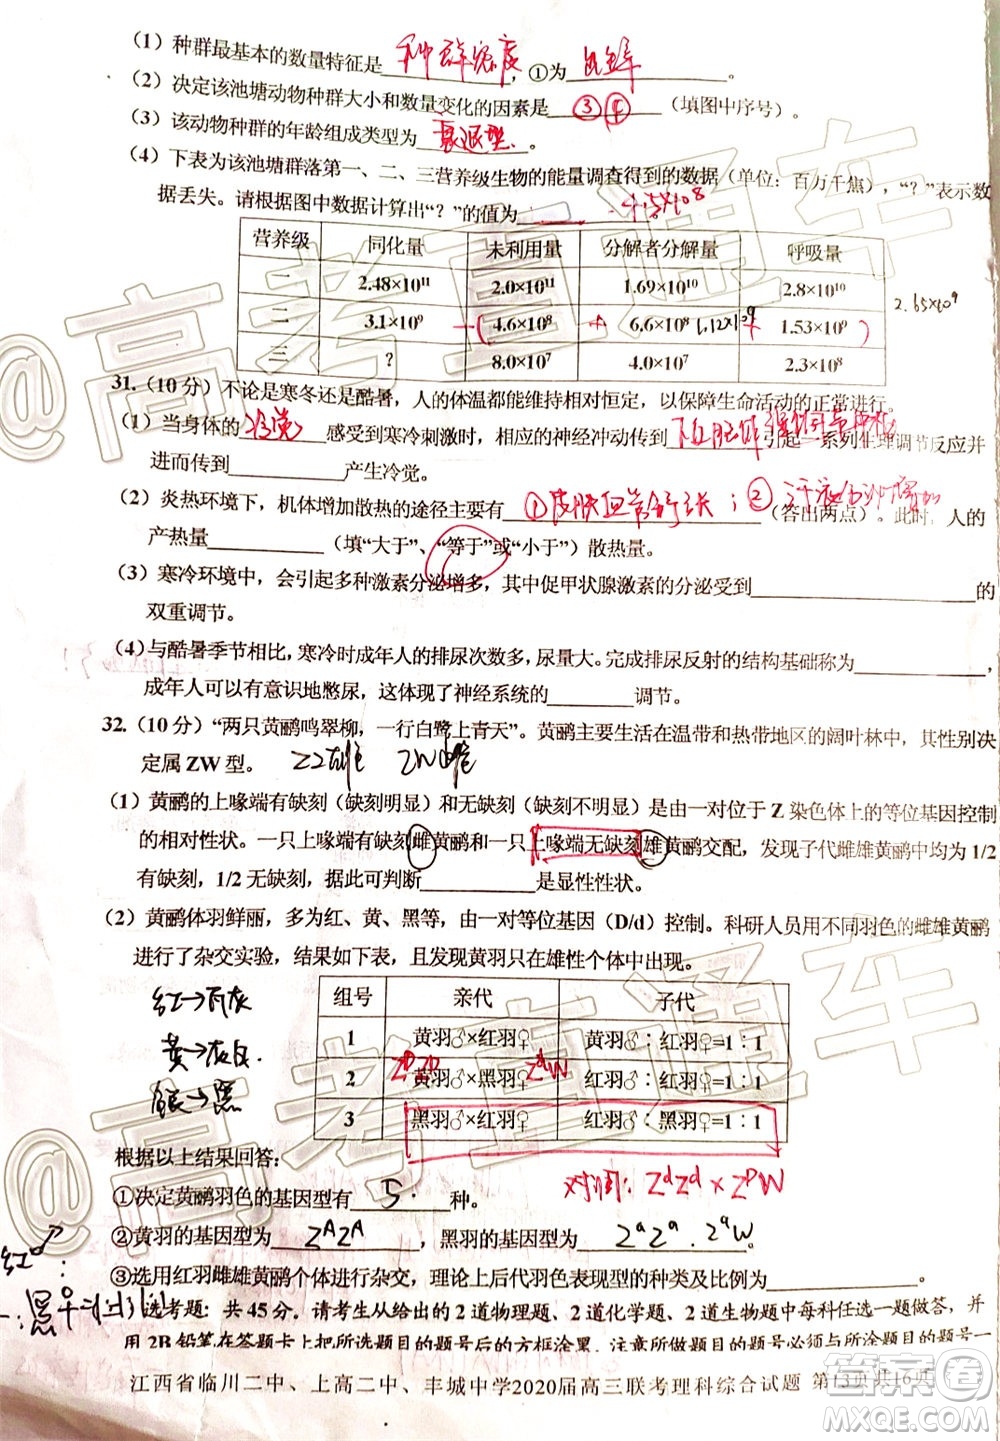 (1) 种群最基本的数量特征是 种群密度 ，①为 出生率 。
(2) 决定该池塘动物种群大小和数量变化的因素是 ③④ （填图中序号）。
(3) 该动物种群的年龄组成类型为 衰退型 。
(4) 下表为该池塘群落第一、二、三营养级生物的能量调查得到的数据（单位：百万千焦），“？”表示数
据丢失。请根据图中数据计算出“？”的值为
营养级 同化量 未利用量 分解者分解量 呼吸量
一 2.48×10¹¹ 2.0×10¹¹ 1.69×10¹⁰ 2.8×10¹⁰
二 3.1×10⁹ 4.6×10⁸ 6.6×10⁸ 1.53×10⁹
三 ？ 8.0×10⁷ 4.0×10⁷ 2.3×10⁸
2.65×10⁹
31.（10 分）不论是寒冬还是酷暑，人的体温都能维持相对恒定，以保障生命活动的正常进行。
(1) 当身体的 冷觉 感受到寒冷刺激时，相应的神经冲动传到 下丘脑 引起一系列生理调节反应并
进而传到 产生冷觉。
(2) 炎热环境下，机体增加散热的途径主要有 ①皮肤血管舒张；②汗液分泌增加 （答出两点）。此时，人的
产热量 （填“大于”、“等于”或“小于”）散热量。
(3) 寒冷环境中，会引起多种激素分泌增多，其中促甲状腺激素的分泌受到 的
双重调节。
(4) 与酷暑季节相比，寒冷时成年人的排尿次数多，尿量大。完成排尿反射的结构基础称为 ，
成年人可以有意识地憋尿，这体现了神经系统的 调节。
32.（10 分）“两只黄鹂鸣翠柳，一行白鹭上青天”。黄鹂主要生活在温带和热带地区的阔叶林中，其性别决
定属 ZW 型。 ZZ雄 ZW雌
(1) 黄鹂的上喙端有缺刻（缺刻明显）和无缺刻（缺刻不明显）是由一对位于 Z 染色体上的等位基因控制
的相对性状。一只上喙端有缺刻雌黄鹂和一只上喙端无缺刻雄黄鹂交配，发现子代雌雄黄鹂中均为 1/2
有缺刻，1/2 无缺刻，据此可判断 是显性性状。
(2) 黄鹂体羽鲜丽，多为红、黄、黑等，由一对等位基因（D/d）控制。科研人员用不同羽色的雌雄黄鹂
进行了杂交实验，结果如下表，且发现黄羽只在雄性个体中出现。
红→瓦灰
黄→灰白
银→黑
组号 亲代 子代
1 黄羽♂×红羽♀ 黄羽♂∶红羽♀=1∶1
2 黄羽♂×黑羽♀ 红羽♂∶红羽♀=1∶1
3 黑羽♂×红羽♀ 红羽♂∶黑羽♀=1∶1
根据以上结果回答： ZdZd × ZDW
①决定黄鹂羽色的基因型有 5 种。
②黄羽的基因型为 ZAZA ，黑羽的基因型为 ZaZa . ZaW 。
③选用红羽雌雄黄鹂个体进行杂交，理论上后代羽色表现型的种类及比例为 。
选考题：共 45 分。请考生从给出的 2 道物理题、2 道化学题、2 道生物题中每科任选一题做答，并
用 2B 铅笔在答题卡上把所选题目的题号后的方框涂黑。注意所做题目的题号必须与所涂题目的题号一
江西省临川二中、上高二中、丰城中学2020届高三联考理科综合试题 第13页 共16页
@高考直通车
@高考直通车
答案圈
MXQE.COM